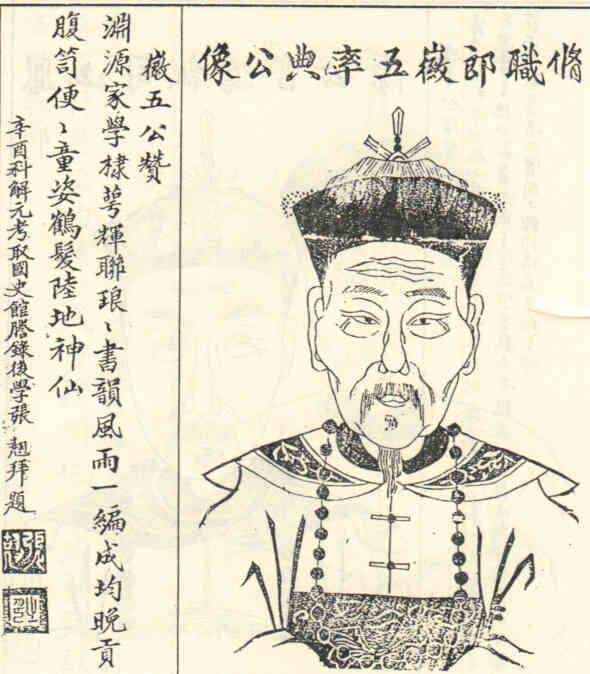 脩職郎嶶五率典公像
嶶五公贊
淵源家學棣萼輝聯琅〻書韻風雨一編成均晚貢
腹笥便〻童姿鶴髮陸地神仙
辛酉科解元考取國史館謄錄後學張翹拜題